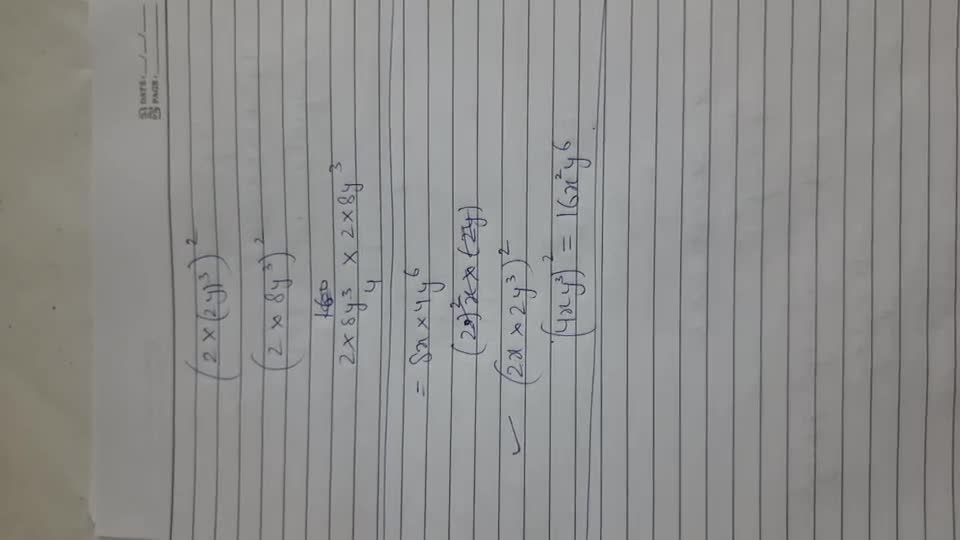 DATE: __/__/__
PAGE:
(2 × (2y)³)²
(2 × 8y³)²
2 × 8y³ × 2 × 8y³
y
= 8x × 4y⁶
(2x × 2y³)²
(4xy³)² = 16x²y⁶